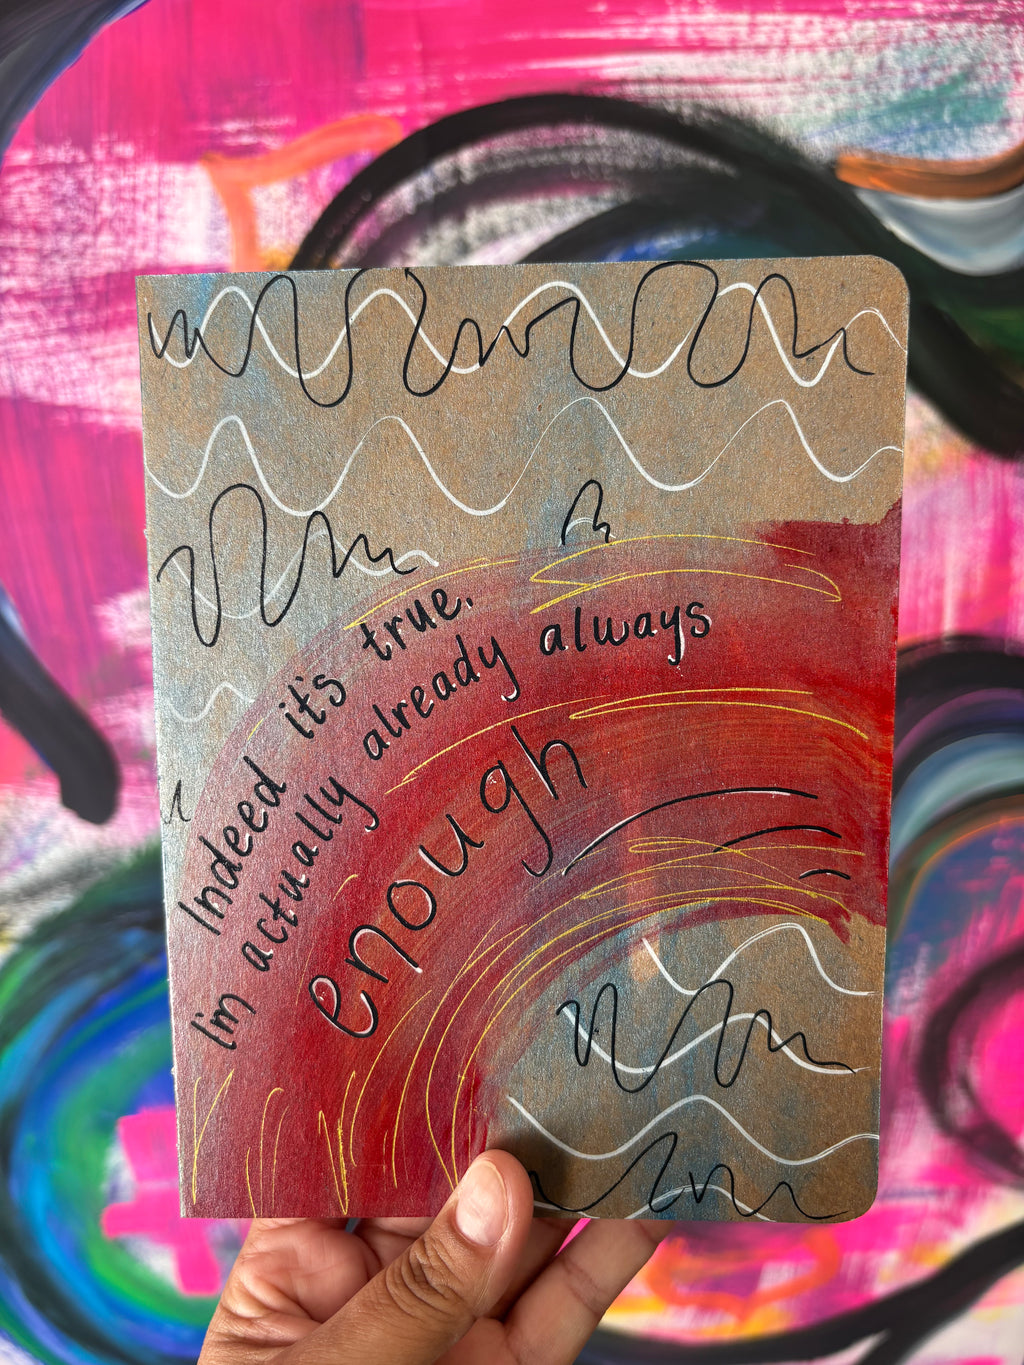 Indeed it's true.
I'm actually already always
enough